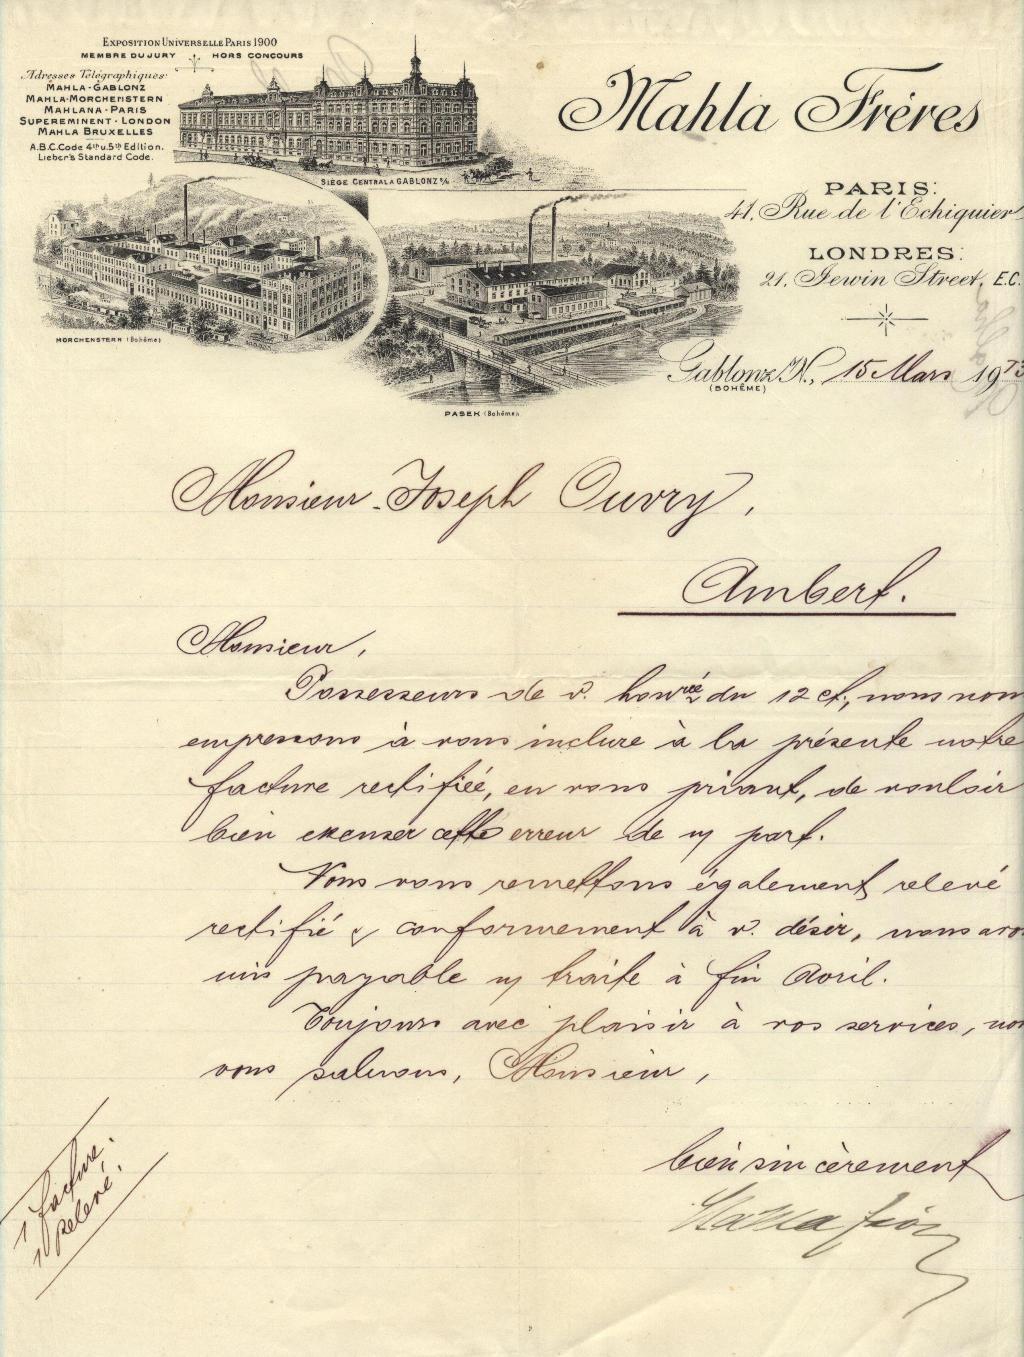 EXPOSITION UNIVERSELLE PARIS 1900
MEMBRE DU JURY HORS CONCOURS
Adresses Télégraphiques:
MAHLA-GABLONZ
MAHLA-MORCHENSTERN
MAHLANA-PARIS
SUPEREMINENT-LONDON
MAHLA BRUXELLES
A.B.C.Code 4th u. 5th Edition.
Lieber's Standard Code.
SIÈGE CENTRAL A GABLONZ a/N
MORCHENSTERN (Bohême)
PASEK (Bohême)
Mahla Frères
PARIS:
41, Rue de l'Echiquier
LONDRES:
21, Jewin Street, E.C.
Gablonz a/N., 15 Mars 19
(BOHÊME)
Monsieur Joseph Ouvry,
Ambert.
Monsieur,
Possesseurs de v. honrée du 12 ct., nous nous
empressons à vous inclure à la présente notre
facture rectifiée, en vous priant, de vouloir
bien excuser cette erreur de n/ part.
Nous vous remettons également relevé
rectifié & conformement à v. désir, nous avo
mis payable n/ traite à fin Avril.
Toujours avec plaisir à vos services, no
vous saluons, Monsieur,
bien sincèrement
Mahla frères
1 facture.
1 relevé.